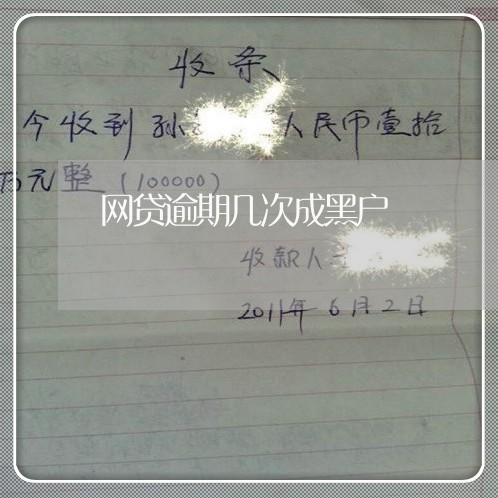 收条
今收到孙 人民币壹拾
万元整（100000）
网贷逾期几次成黑户
收款人
2011年6月2日